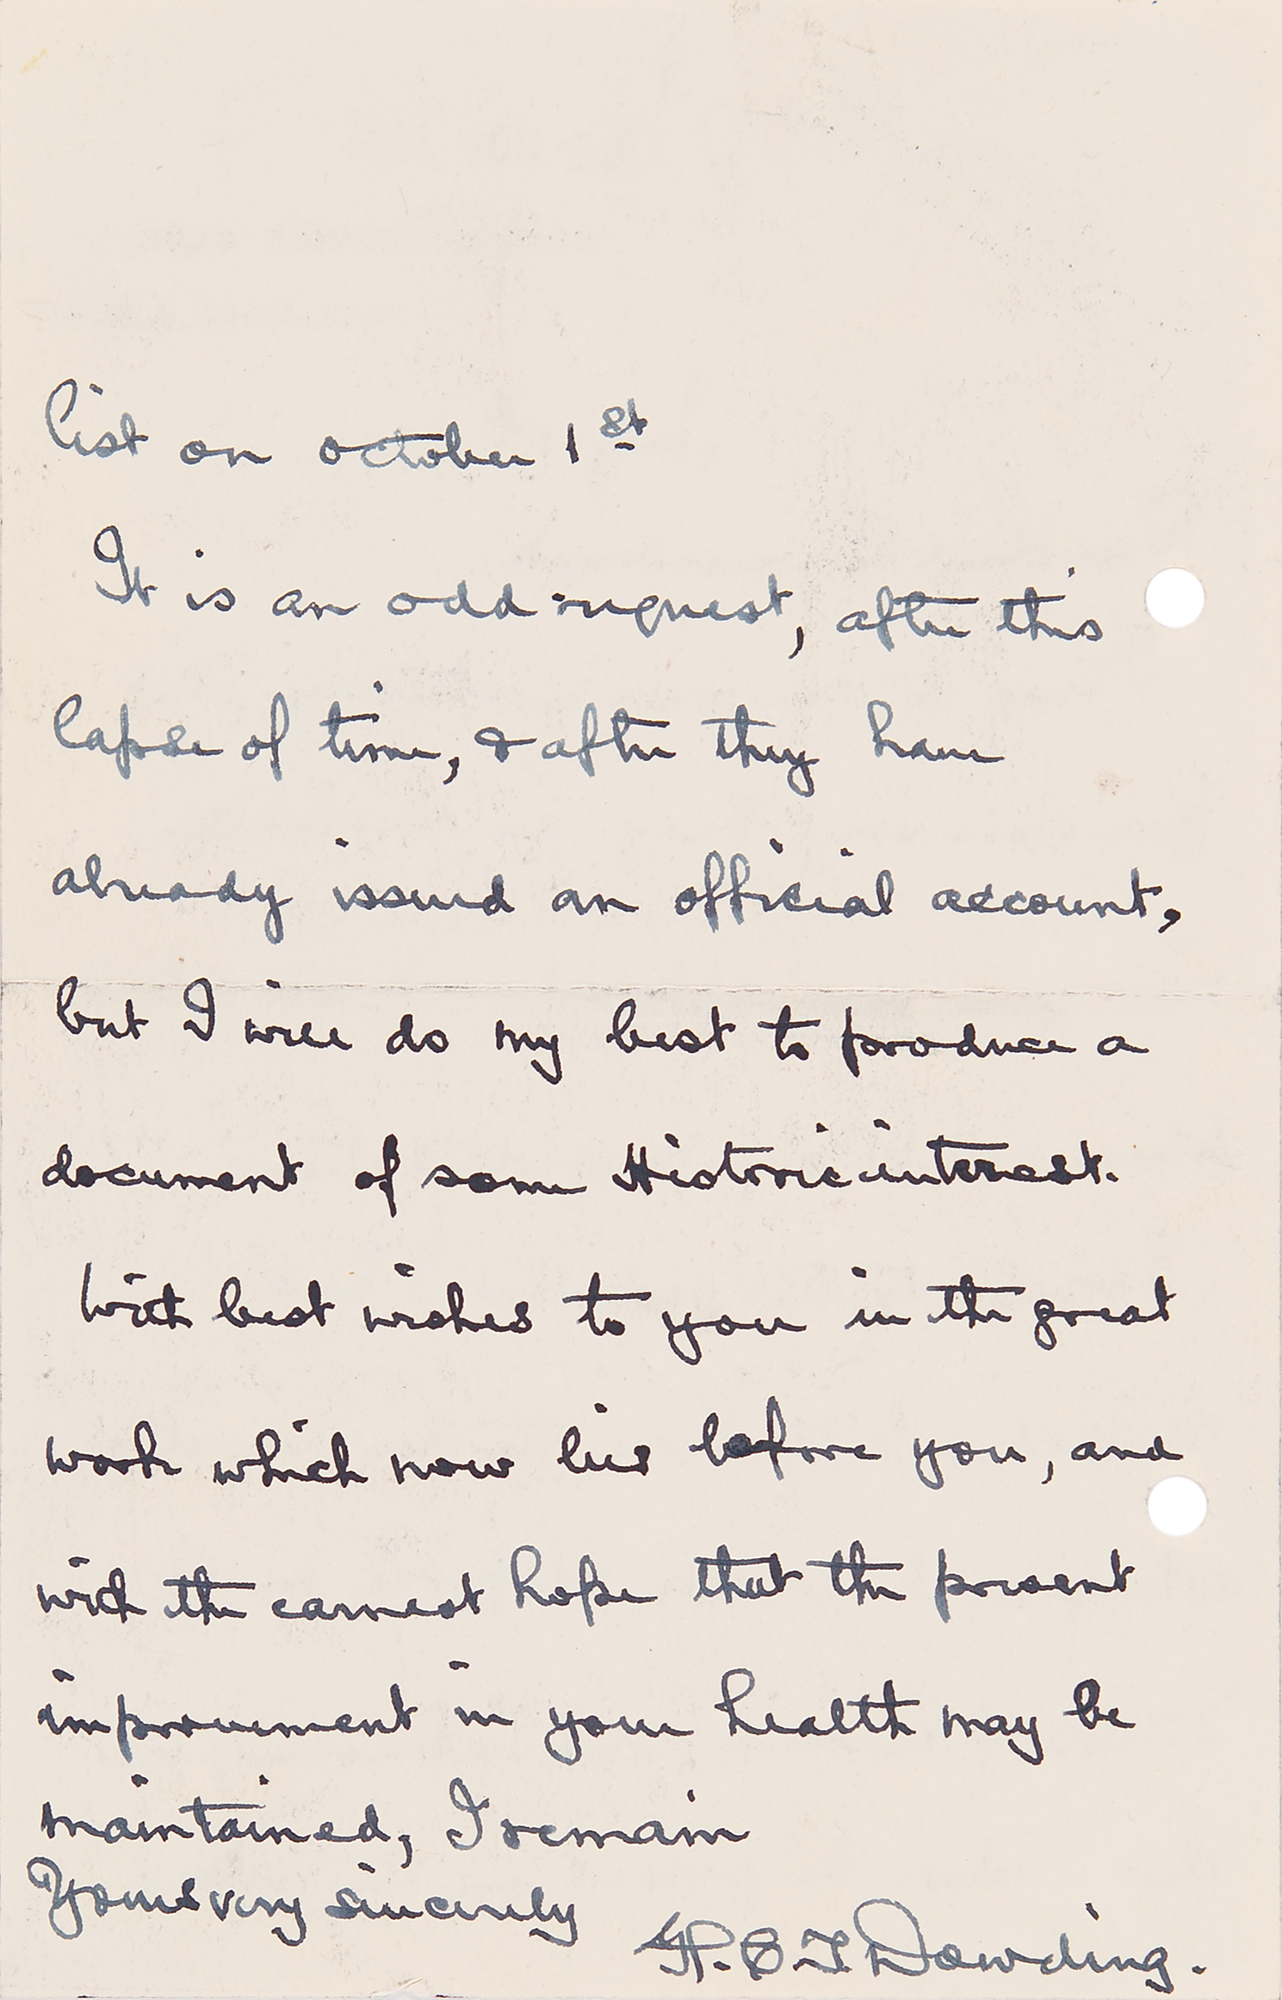 list on October 1st
It is an odd request, after this
lapse of time, & after they have
already issued an official account,
but I will do my best to produce a
document of some Historic interest.
With best wishes to you in the great
work which now lies before you, and
with the earnest hope that the present
improvement in your health may be
maintained, I remain
Yours very sincerely
H.C.T. Dowding.